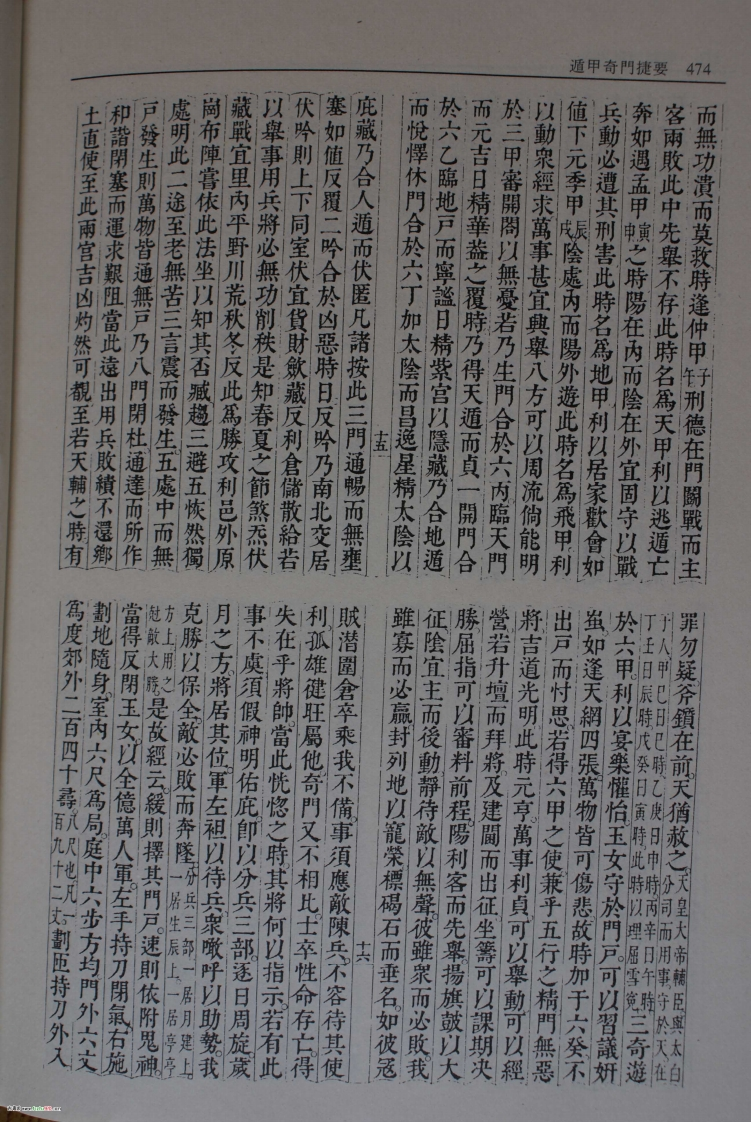 遁甲奇門捷要 474
而無功潰而莫救時逢仲甲子午刑德在門鬬戰而主
客兩敗此中先舉不存此時名爲天甲利以逃遁亡
奔如遇孟甲寅申之時陽在內而陰在外宜固守以戰
兵動必遭其刑害此時名爲地甲利以居家歡會如
值下元季甲辰戌陰處內而陽外遊此時名爲飛甲利
以動衆經求萬事甚宜興舉八方可以周流倘能明
於三甲審開闔以無憂若乃生門合於六丙臨天門
而元吉日精華葢之覆時乃得天遁而貞一開門合
於六乙臨地戶而寧謐日精紫宮以隱藏乃合地遁
而悅懌休門合於六丁加太陰而昌逸星精太陰以
十五
庇藏乃合人遁而伏匿凡諸按此三門通暢而無壅
塞如值反覆二吟合於凶惡時日反吟乃南北交居
伏吟則上下同室伏宜貨財斂藏反利倉儲散給若
以舉事用兵將必無功削秩是知春夏之節煞炁伏
藏戰宜里內平野川荒秋冬反此爲勝攻利邑外原
崗布陣嘗依此法坐以知其否臧趨三避五恢然獨
處明此二途至老無苦三言震而發生五處中而無
戶發生則萬物皆通無戶乃八門閉杜通達而所作
和諧閉塞而運求艱阻當此遠出用兵敗績不還鄉
土直使至此兩宮吉凶灼然可覩至若天輔之時有
罪勿疑斧鑕在前天猶赦之天皇大帝輔臣與太白分司而用事守於天在
于八甲己日巳時乙庚日申時丙辛日午時丁壬日辰時戊癸日寅時此時以理屈雪寃三奇遊
於六甲利以宴樂懽怡玉女守於門戶可以習議姸
蚩如逢天網四張萬物皆可傷悲故時加于六癸不
出戶而忖思若得六甲之使兼乎五行之精門無惡
將吉道光明此時元亨萬事利貞可以舉動可以經
營若升壇而拜將及建閫而出征坐籌可以課期决
勝屈指可以審料前程陽利客而先舉揚旗鼓以大
征陰宜主而後動靜待敵以無聲彼雖衆而必敗我
雖寡而必贏封列地以寵榮標碣石而垂名如彼寇
十六
賊潜圍倉卒乘我不備事須應敵陳兵不容待其使
利孤雄徤旺屬他奇門又不相比士卒性命存亡得
失在乎將帥當此恍惚之時其將何以指示若有此
事不虞須假神明佑庇卽以分兵三部逐日周旋歲
月之方將居其位軍左袒以待兵衆噉呼以助勢我
克勝以保全敵必敗而奔墜分兵三部一居月建上一居生辰上一居亭亭
方上用之尅敵大勝是故經云緩則擇其門戶速則依附鬼神
當得反閉玉女以全億萬人軍左手持刀閉氣右施
劃地隨身室內六尺爲局庭中六步方均門外六丈
爲度郊外二百四十尋八尺也凡一百九十二丈劃匝持刀外入